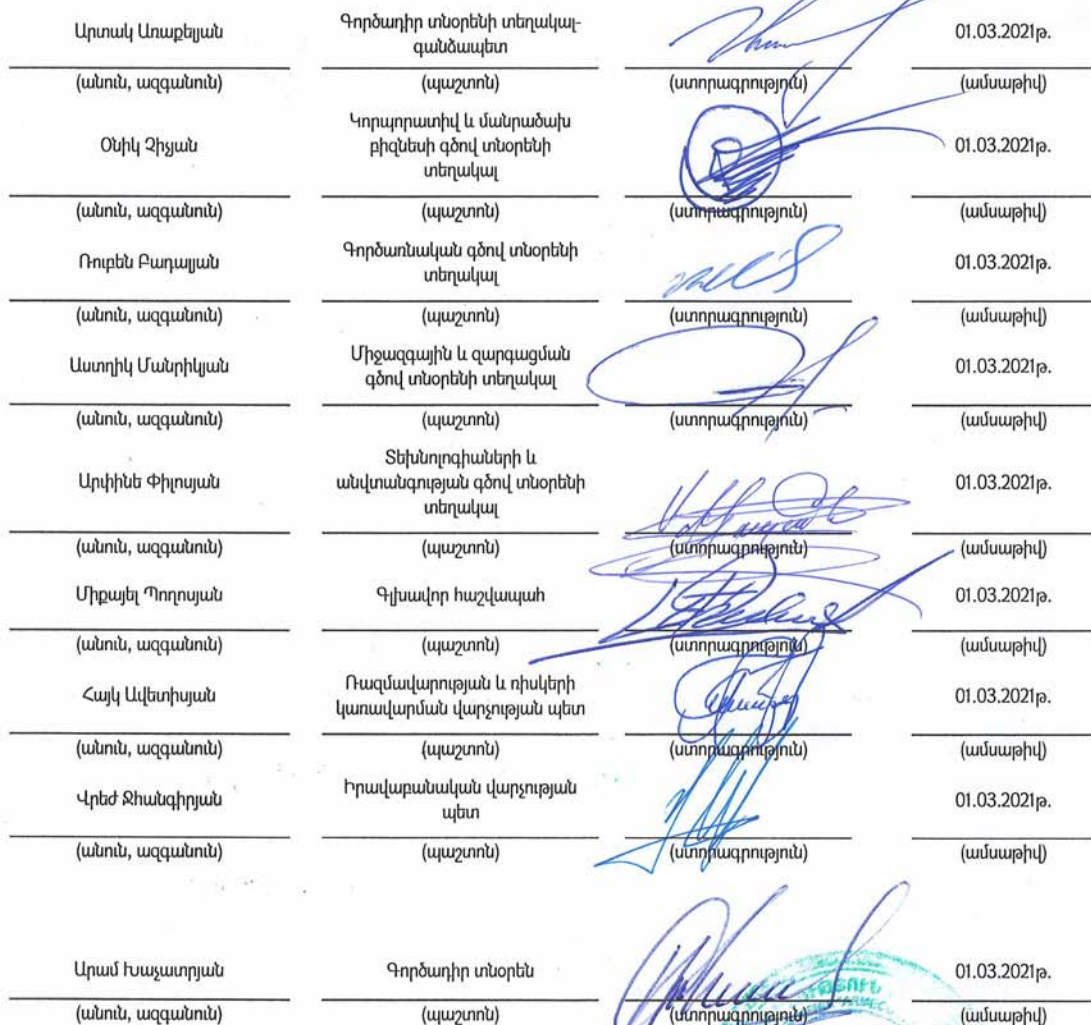 Արտակ Առաքելյան
Գործադիր տնօրենի տեղակալ-
գանձապետ
01.03.2021թ.
(անուն, ազգանուն) (պաշտոն) (ստորագրություն) (ամսաթիվ)
Օնիկ Չիչյան
Կորպորատիվ և մանրածախ
բիզնեսի գծով տնօրենի
տեղակալ
01.03.2021թ.
(անուն, ազգանուն) (պաշտոն) (ստորագրություն) (ամսաթիվ)
Ռուբեն Բադալյան
Գործառնական գծով տնօրենի
տեղակալ
01.03.2021թ.
(անուն, ազգանուն) (պաշտոն) (ստորագրություն) (ամսաթիվ)
Աստղիկ Մանրիկյան
Միջազգային և զարգացման
գծով տնօրենի տեղակալ
01.03.2021թ.
(անուն, ազգանուն) (պաշտոն) (ստորագրություն) (ամսաթիվ)
Արփինե Փիլոսյան
Տեխնոլոգիաների և
անվտանգության գծով տնօրենի
տեղակալ
01.03.2021թ.
(անուն, ազգանուն) (պաշտոն) (ստորագրություն) (ամսաթիվ)
Միքայել Պողոսյան
Գլխավոր հաշվապահ
01.03.2021թ.
(անուն, ազգանուն) (պաշտոն) (ստորագրություն) (ամսաթիվ)
Հայկ Ավետիսյան
Ռազմավարության և ռիսկերի
կառավարման վարչության պետ
01.03.2021թ.
(անուն, ազգանուն) (պաշտոն) (ստորագրություն) (ամսաթիվ)
Վրեժ Ջհանգիրյան
Իրավաբանական վարչության
պետ
01.03.2021թ.
(անուն, ազգանուն) (պաշտոն) (ստորագրություն) (ամսաթիվ)
Արամ Խաչատրյան
Գործադիր տնօրեն
01.03.2021թ.
(անուն, ազգանուն) (պաշտոն) (ստորագրություն) (ամսաթիվ)